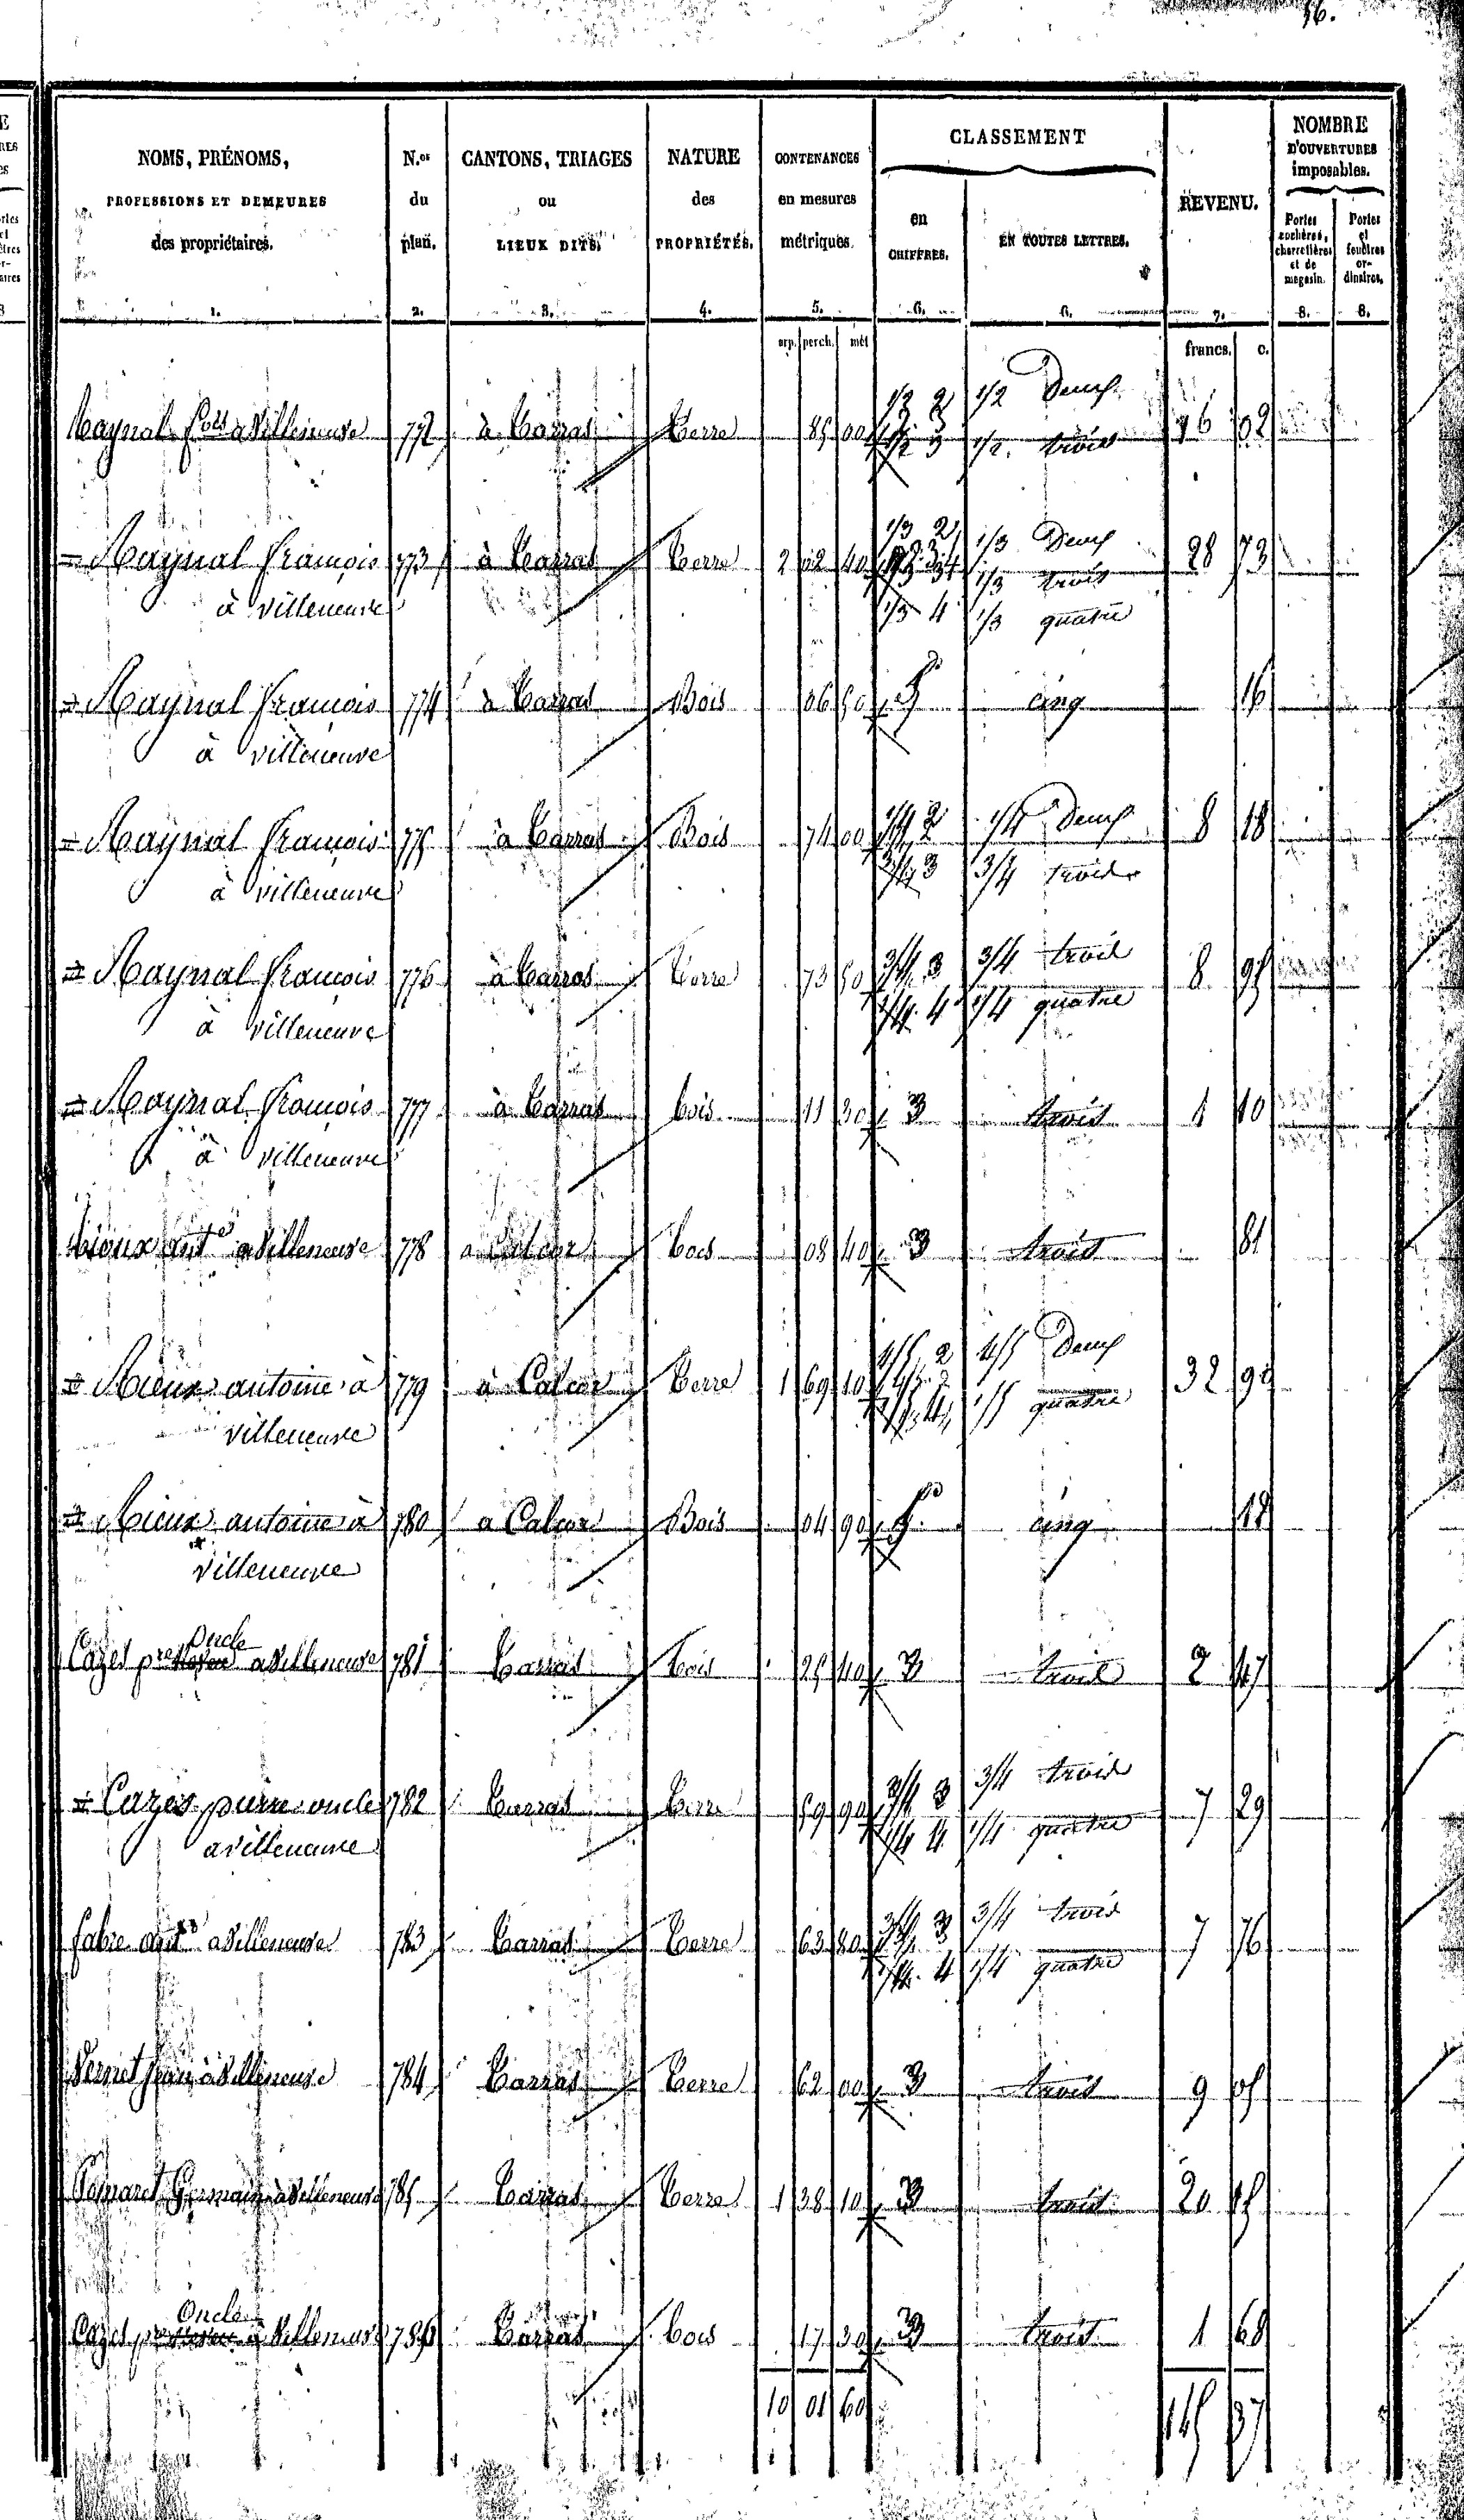 36.
NOMS, PRÉNOMS,
PROFESSIONS ET DEMEURES
des propriétaires.
N.os
du
plan.
CANTONS, TRIAGES
ou
LIEUX DITS.
NATURE
des
PROPRIÉTÉS.
CONTENANCES
en mesures
métriques.
CLASSEMENT
en
CHIFFRES.
EN TOUTES LETTRES.
REVENU.
NOMBRE
D'OUVERTURES
imposables.
Portes
cochères,
charretières
et de
magasin.
Portes
et
fenêtres
or-
dinaires.
1. 2. 3. 4. 5. 6. 6. 7. 8. 8.
arp. perch. mèt francs. c.
Maynal fois a Villeneuve 772 à Carras Terre 85 00 1/2 2 1/2 Deux 16 02
1/2 3 1/2 trois
= Maynal françois 773 à Carras Terre 2 40 1/3 2 1/3 Deux 28 73
à villeneuve 1/3 trois
1/3 4 1/3 quatre
= Maynal françois 774 à Carras Bois 06 50 5 cinq 16
à villeneuve
= Maynal françois 775 à Carras Bois 74 00 1/4 2 1/4 Deux 8 18
à villeneuve 3/4 3 3/4 trois
= Maynal françois 776 à Carras Terre 73 50 3/4 3 3/4 trois 8 95
à villeneuve 1/4 4 1/4 quatre
= Maynal françois 777 à Carras bois 11 30 3 trois 1 10
à villeneuve
ante a Villeneuve 778 a bois 08 40 3 trois 81
= antoine à 779 à Calcor Terre 1 69 10 4/5 2 4/5 Deux 32 99
villeneuve 1/5 4 1/5 quatre
= antoine à 780 a Calcor Bois 04 90 5 cinq 12
villeneuve
Oncle
Cazes pre a Villeneuve 781 Carras bois 25 40 3 trois 2 47
= Cazes pierre oncle 782 Carras Terre 59 90 3/4 3 3/4 trois 7 29
a villeneuve 1/4 4 1/4 quatre
fabre ante a Villeneuve 783 Carras Terre 63 80 3/4 3 3/4 trois 7 76
1/4 4 1/4 quatre
Vernet Jean à Villeneuve 784 Carras Terre 62 00 3 trois 9 05
Germain à Villeneuve 785 Carras Terre 1 38 10 3 trois 20 15
Oncle
Cazes pre a Villeneuve 786 Carras bois 17 30 3 trois 1 68
10 01 60 145